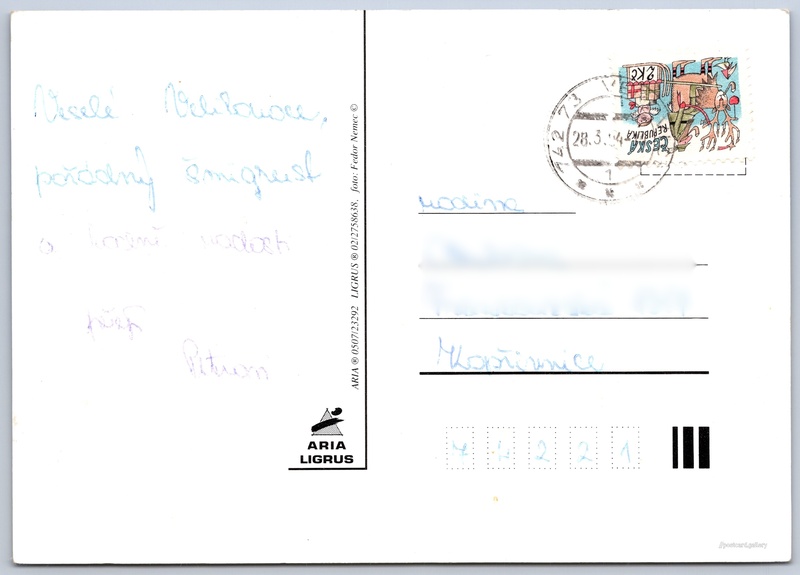 Veselé Velikonoce,
pořádný šmigrust
a hodně radosti
přejí
ARIA ® 0507/23292 LIGRUS ® 02/2758638, foto: Fedor Nemec ©
ARIA
LIGRUS
2 Kč
ČESKÁ
REPUBLIKA
742 73
28.3.94
1
rodina
Kopřivnice
74221